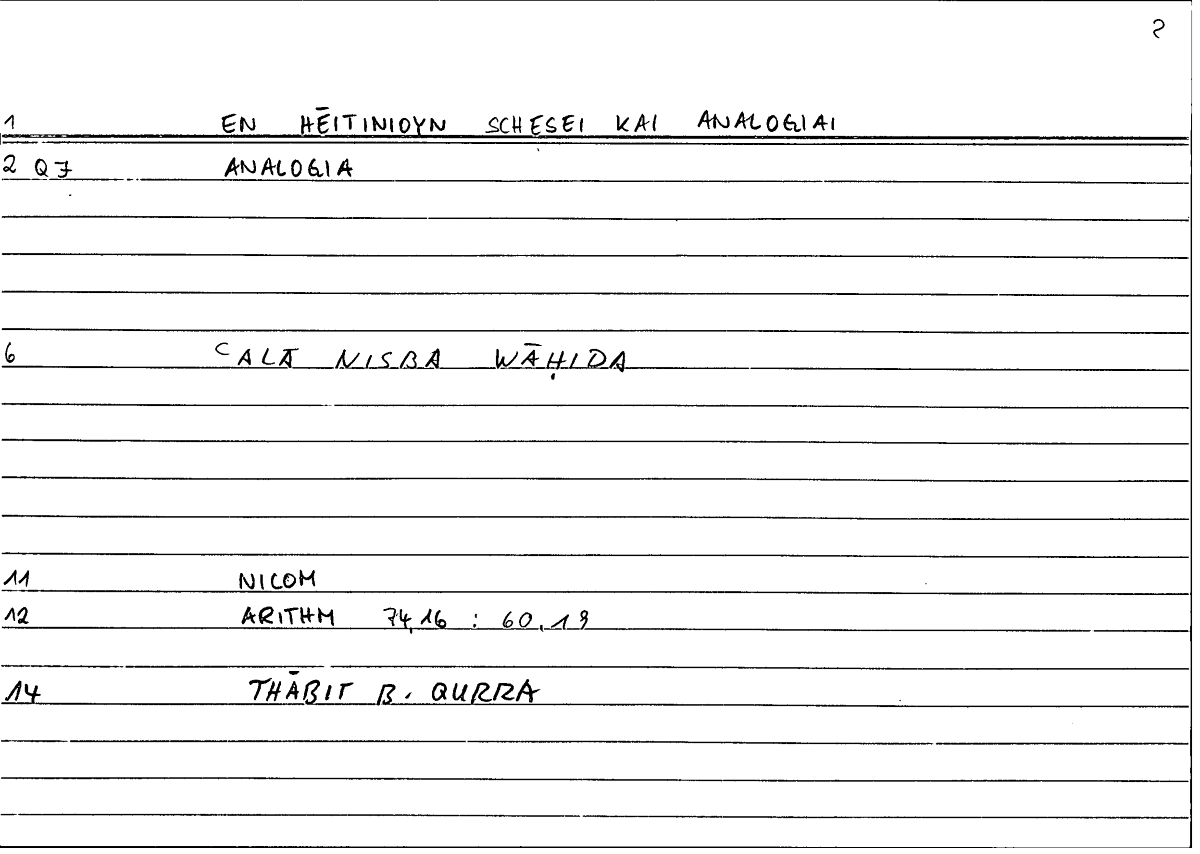 2
1 EN HĒITINIOYN SCHESEI KAI ANALOGIAI
2 Q7 ANALOGIA
6 ʿALĀ NISBA WĀḤIDA
11 NICOM
12 ARITHM 74,16 : 60,19
14 THĀBIT B. QURRA